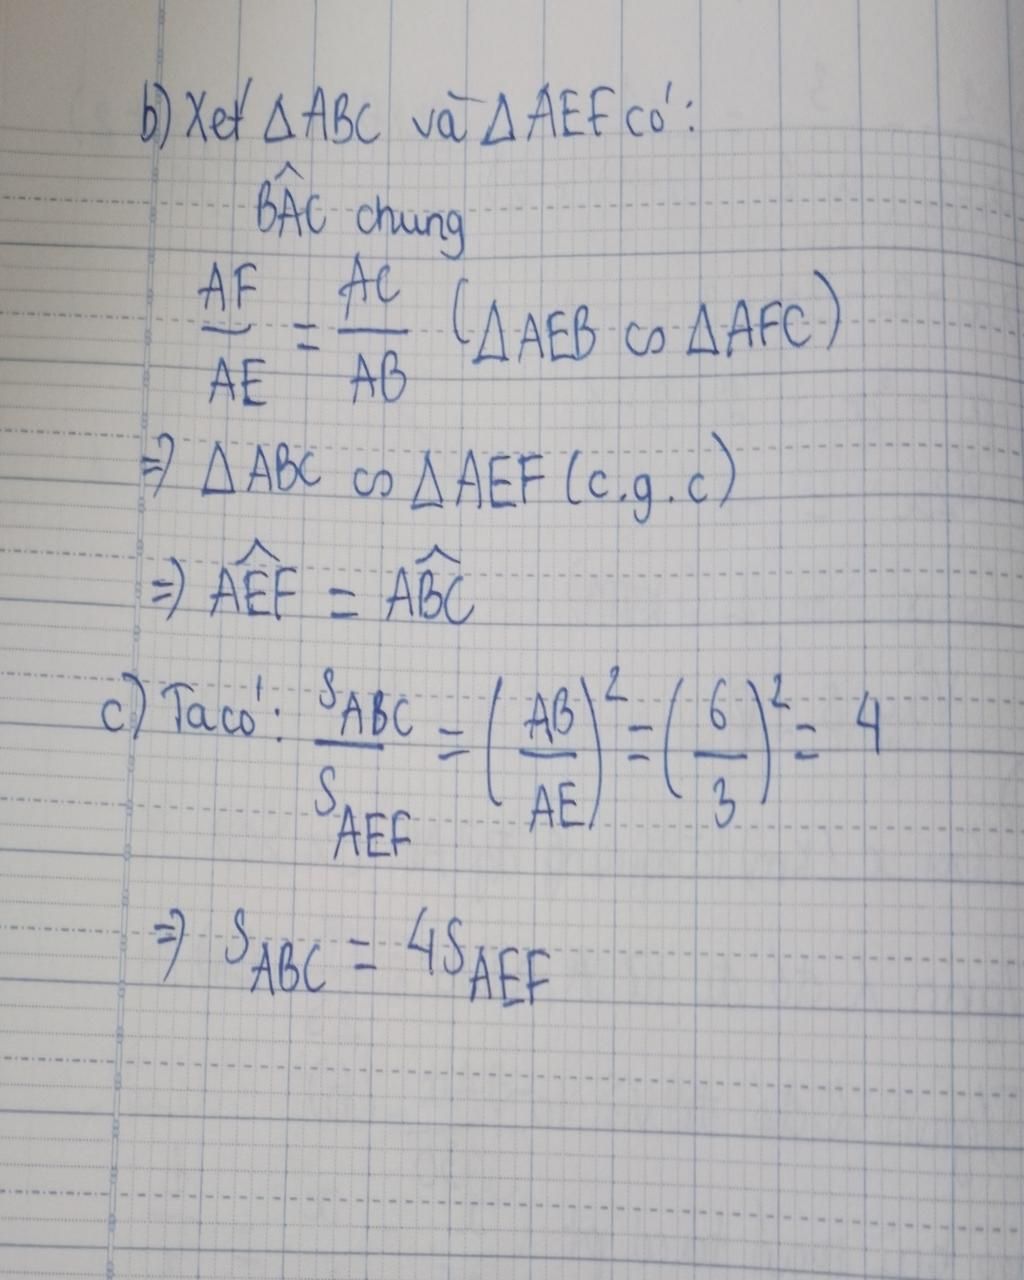 b) Xét △ABC và △AEF có:
BÂC chung
AF/AE = AC/AB (△AEB ∽ △AFC)
=> △ABC ∽ △AEF (c.g.c)
=> AÊF = AB̂C
c) Ta có: S_ABC/S_AEF = (AB/AE)² = (6/3)² = 4
=> S_ABC = 4S_AEF